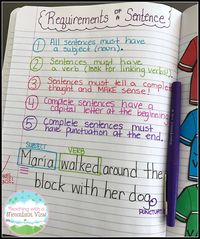 Requirements OF A Sentence
① All sentences must have
a subject (noun).
② Sentences must have
a verb (look for linking verbs).
③ Sentences must tell a complete
thought and MAKE sense!
④ Complete sentences have a
capital letter at the beginning.
⑤ Complete sentences must
have punctuation at the end.
SUBJECT VERB
Maria walked around the
block with her dog.
PUNCTUATION
Teaching with a
Mountain View